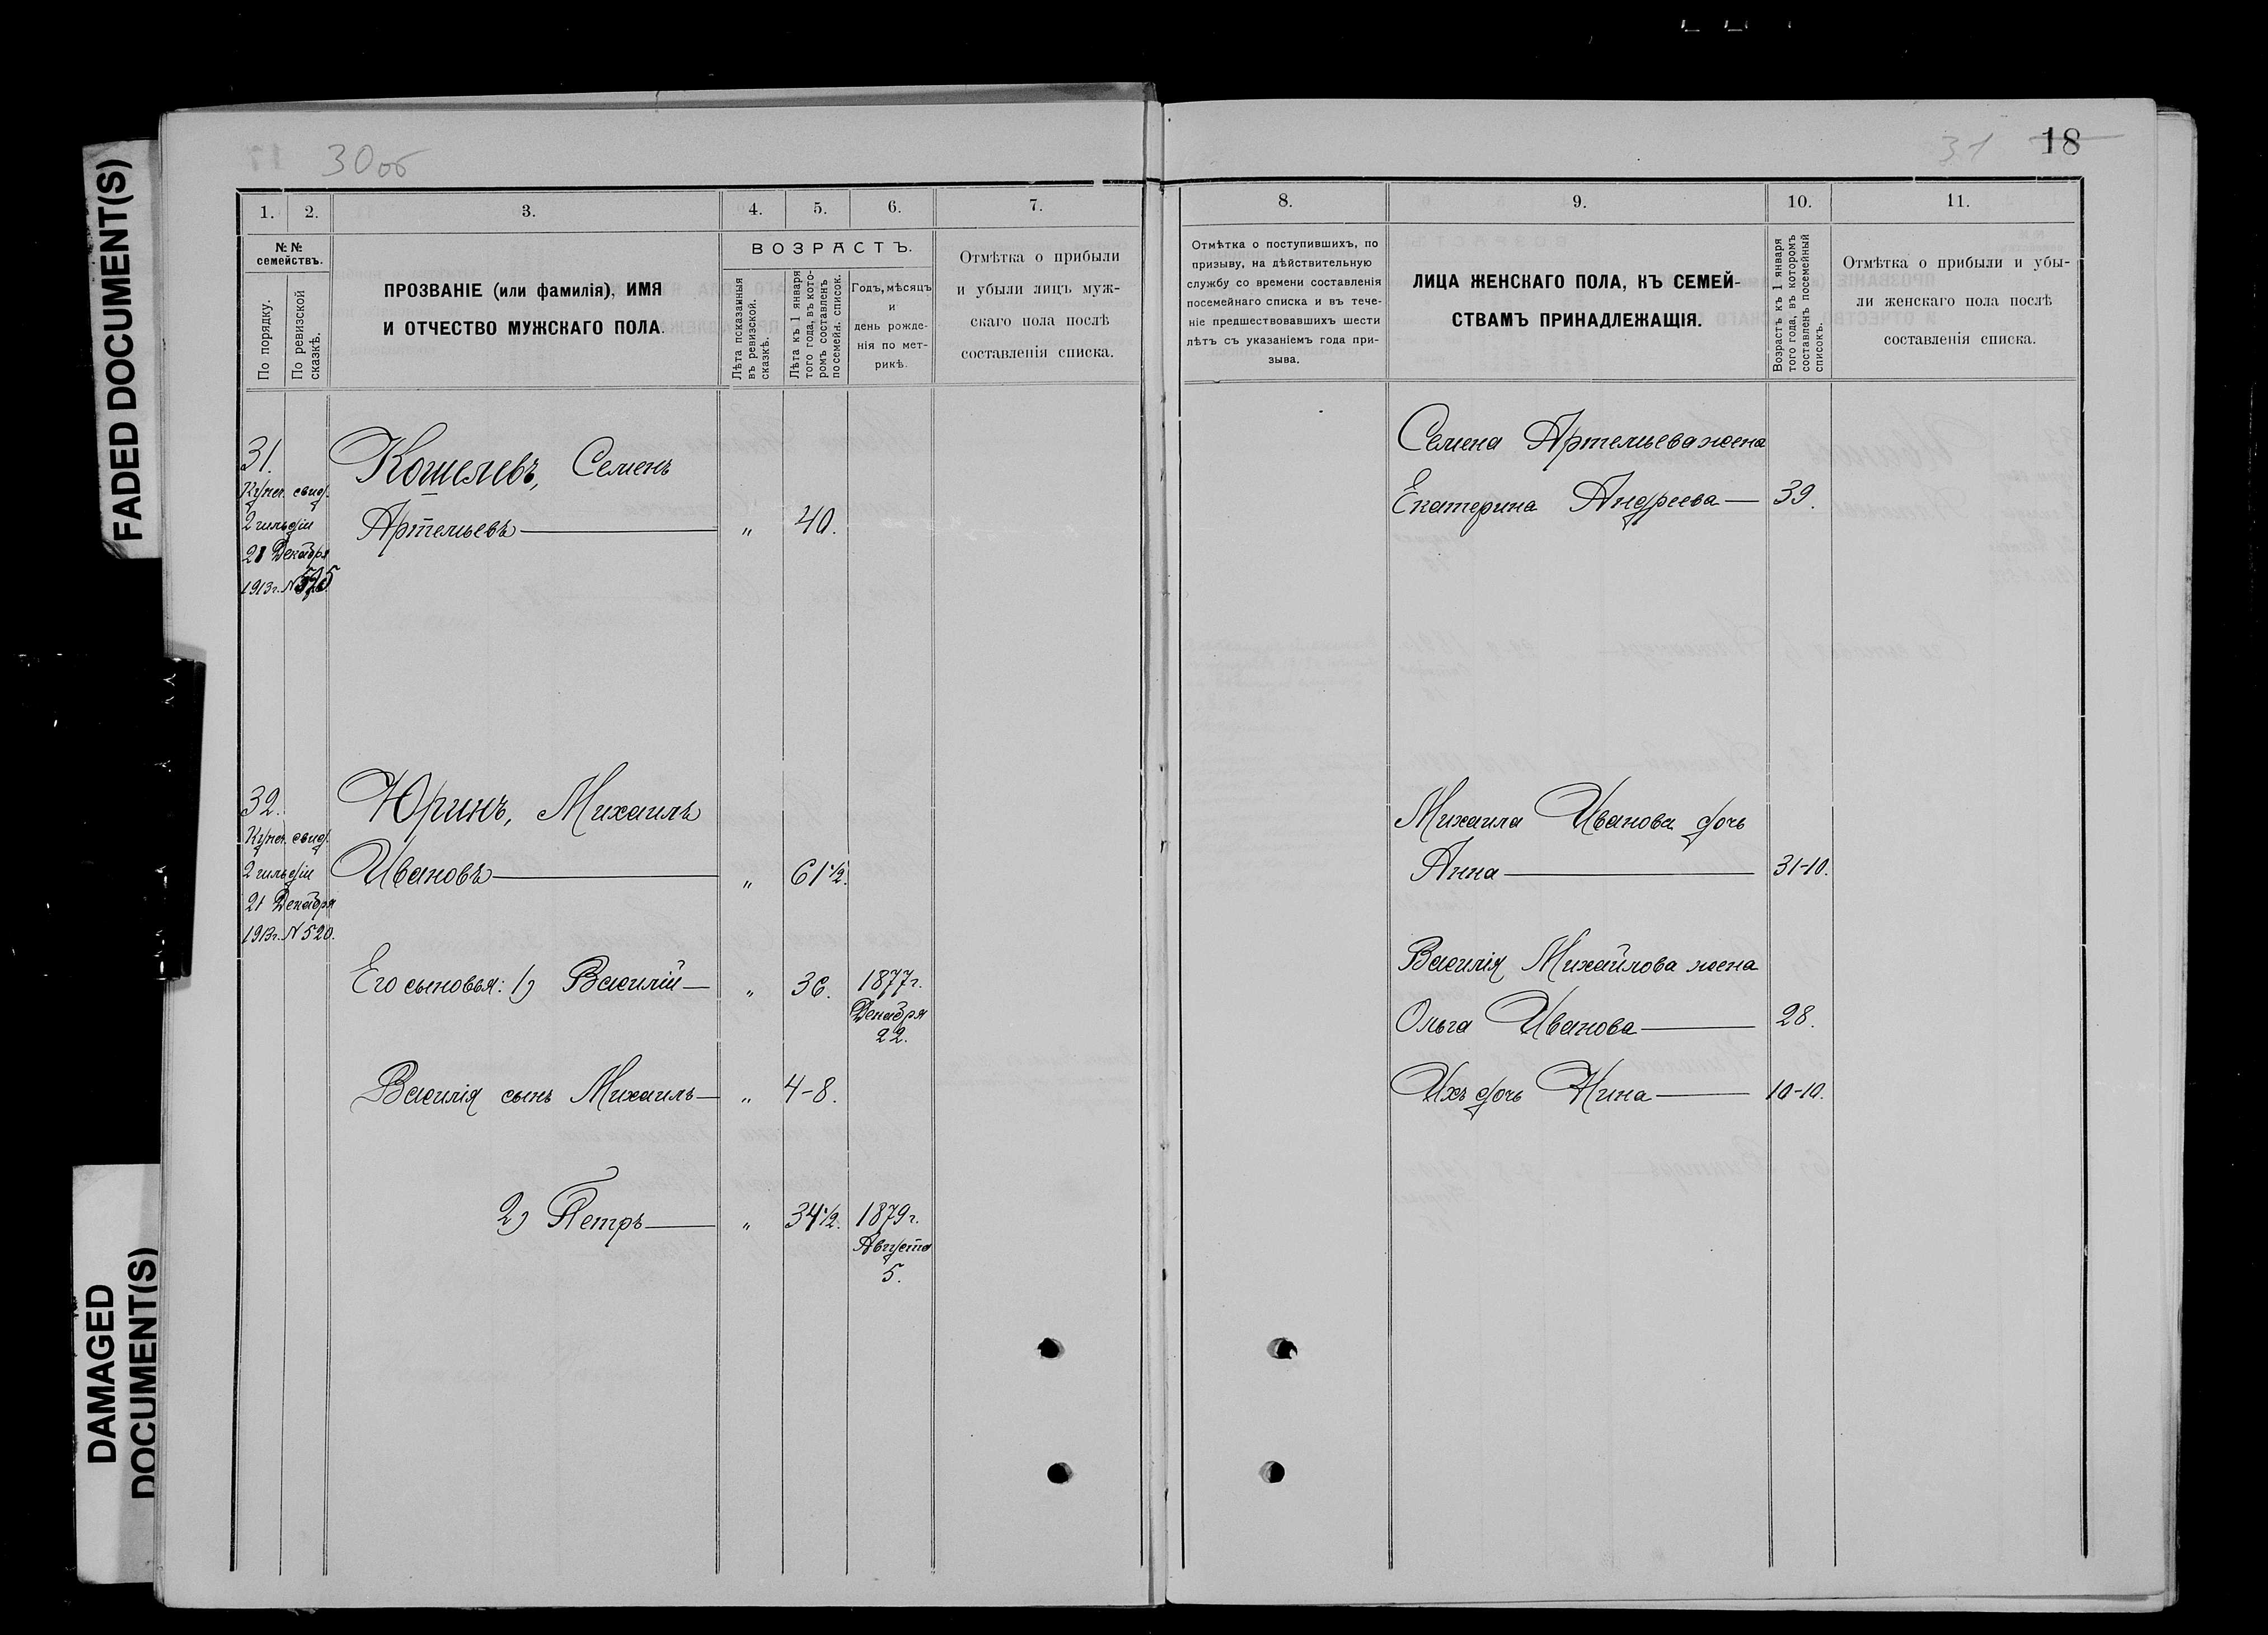 FADED DOCUMENT(S)
DAMAGED
DOCUMENT(S)
30об
1.
2.
3.
4.
5.
6.
7.
№№
семействъ.
По порядку.
По ревизской
сказкѣ.
ПРОЗВАНІЕ (или фамилія), ИМЯ
И ОТЧЕСТВО МУЖСКАГО ПОЛА.
ВОЗРАСТЪ.
Лѣта показанныя
въ ревизской.
сказкѣ.
Лѣта къ 1 января
того года, въ кото-
ромъ составленъ
посемейн. список.
Годъ, мѣсяцъ
и
день рожде-
нія по мет-
рикѣ.
Отмѣтка о прибыли
и убыли лицъ муж-
скаго пола послѣ
составленія списка.
31.
Купеч. свид.
2 гильдіи
21 Декабря
1913г. №
Кошелевъ, Семенъ
Артемьевъ — „ 40.
32.
Купеч. свид.
2 гильдіи
21 Декабря
1913г. № 520.
Юринъ, Михаилъ
Ивановъ — „ 61½.
Его сыновья: 1) Василій — „ 36. 1877г.
Декабря
22.
Василія сынъ Михаилъ — „ 4-8.
2) Петръ — „ 34½. 1879г.
Августа
5.
31 18
8.
9.
10.
11.
Отмѣтка о поступившихъ, по
призыву, на дѣйствительную
службу со времени составленія
посемейнаго списка и въ тече-
ніе предшествовавшихъ шести
лѣтъ съ указаніемъ года при-
зыва.
ЛИЦА ЖЕНСКАГО ПОЛА, КЪ СЕМЕЙ-
СТВАМЪ ПРИНАДЛЕЖАЩІЯ.
Возрастъ къ 1 января
того года, въ которомъ
составленъ посемейный
списокъ.
Отмѣтка о прибыли и убы-
ли женскаго пола послѣ
составленія списка.
Семена Артемьева жена
Екатерина Андреева — 39.
Михаила Иванова дочь
Анна — 31-10.
Василія Михайлова жена
Ольга Иванова — 28.
Ихъ дочь Нина — 10-10.